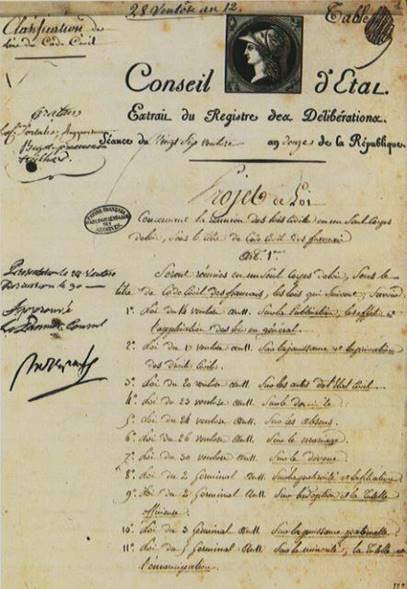 28 Ventose an 12.
Classification des
Lois du Code Civil
Table
Conseil d'Etat.
Extrait du Registre des Délibérations.
Séance du Vingt Six ventose an douze de la République.
Projet de Loi
Concernant la Réunion des lois civiles en un Seul Corps
de loix, Sous le titre de Code Civil des français
Art. 1er
Seront réunies en un Seul Corps de loix, Sous le
titre de Code Civil des français, les lois qui Suivent, Savoir
1° Loi du 14 ventose an 11. Sur la publication, les effets et
l'application des lois en général.
2° Loi du 17 ventose an 11. Sur la jouissance et la privation
des droits Civils.
3° Loi du 20 ventose an 11. Sur les actes de l'Etat Civil
4° Loi du 23 ventose an 11. Sur le domicile
5° Loi du 24 ventose an 11. Sur les absens.
6° Loi du 26 ventose an 11. Sur le mariage
7° Loi du 30 ventose an 11. Sur le divorce
8° Loi du 2 Germinal an 11. Sur la paternité et la filiation
9° Loi du 2 Germinal an 11. Sur l'adoption et la Tutelle
officieuse.
10° Loi du 3 Germinal an 11. Sur la puissance paternelle
11° Loi du 5 Germinal an 11. Sur la minorité, la Tutelle et
l'émancipation.
Approuvé
Le Premier Consul